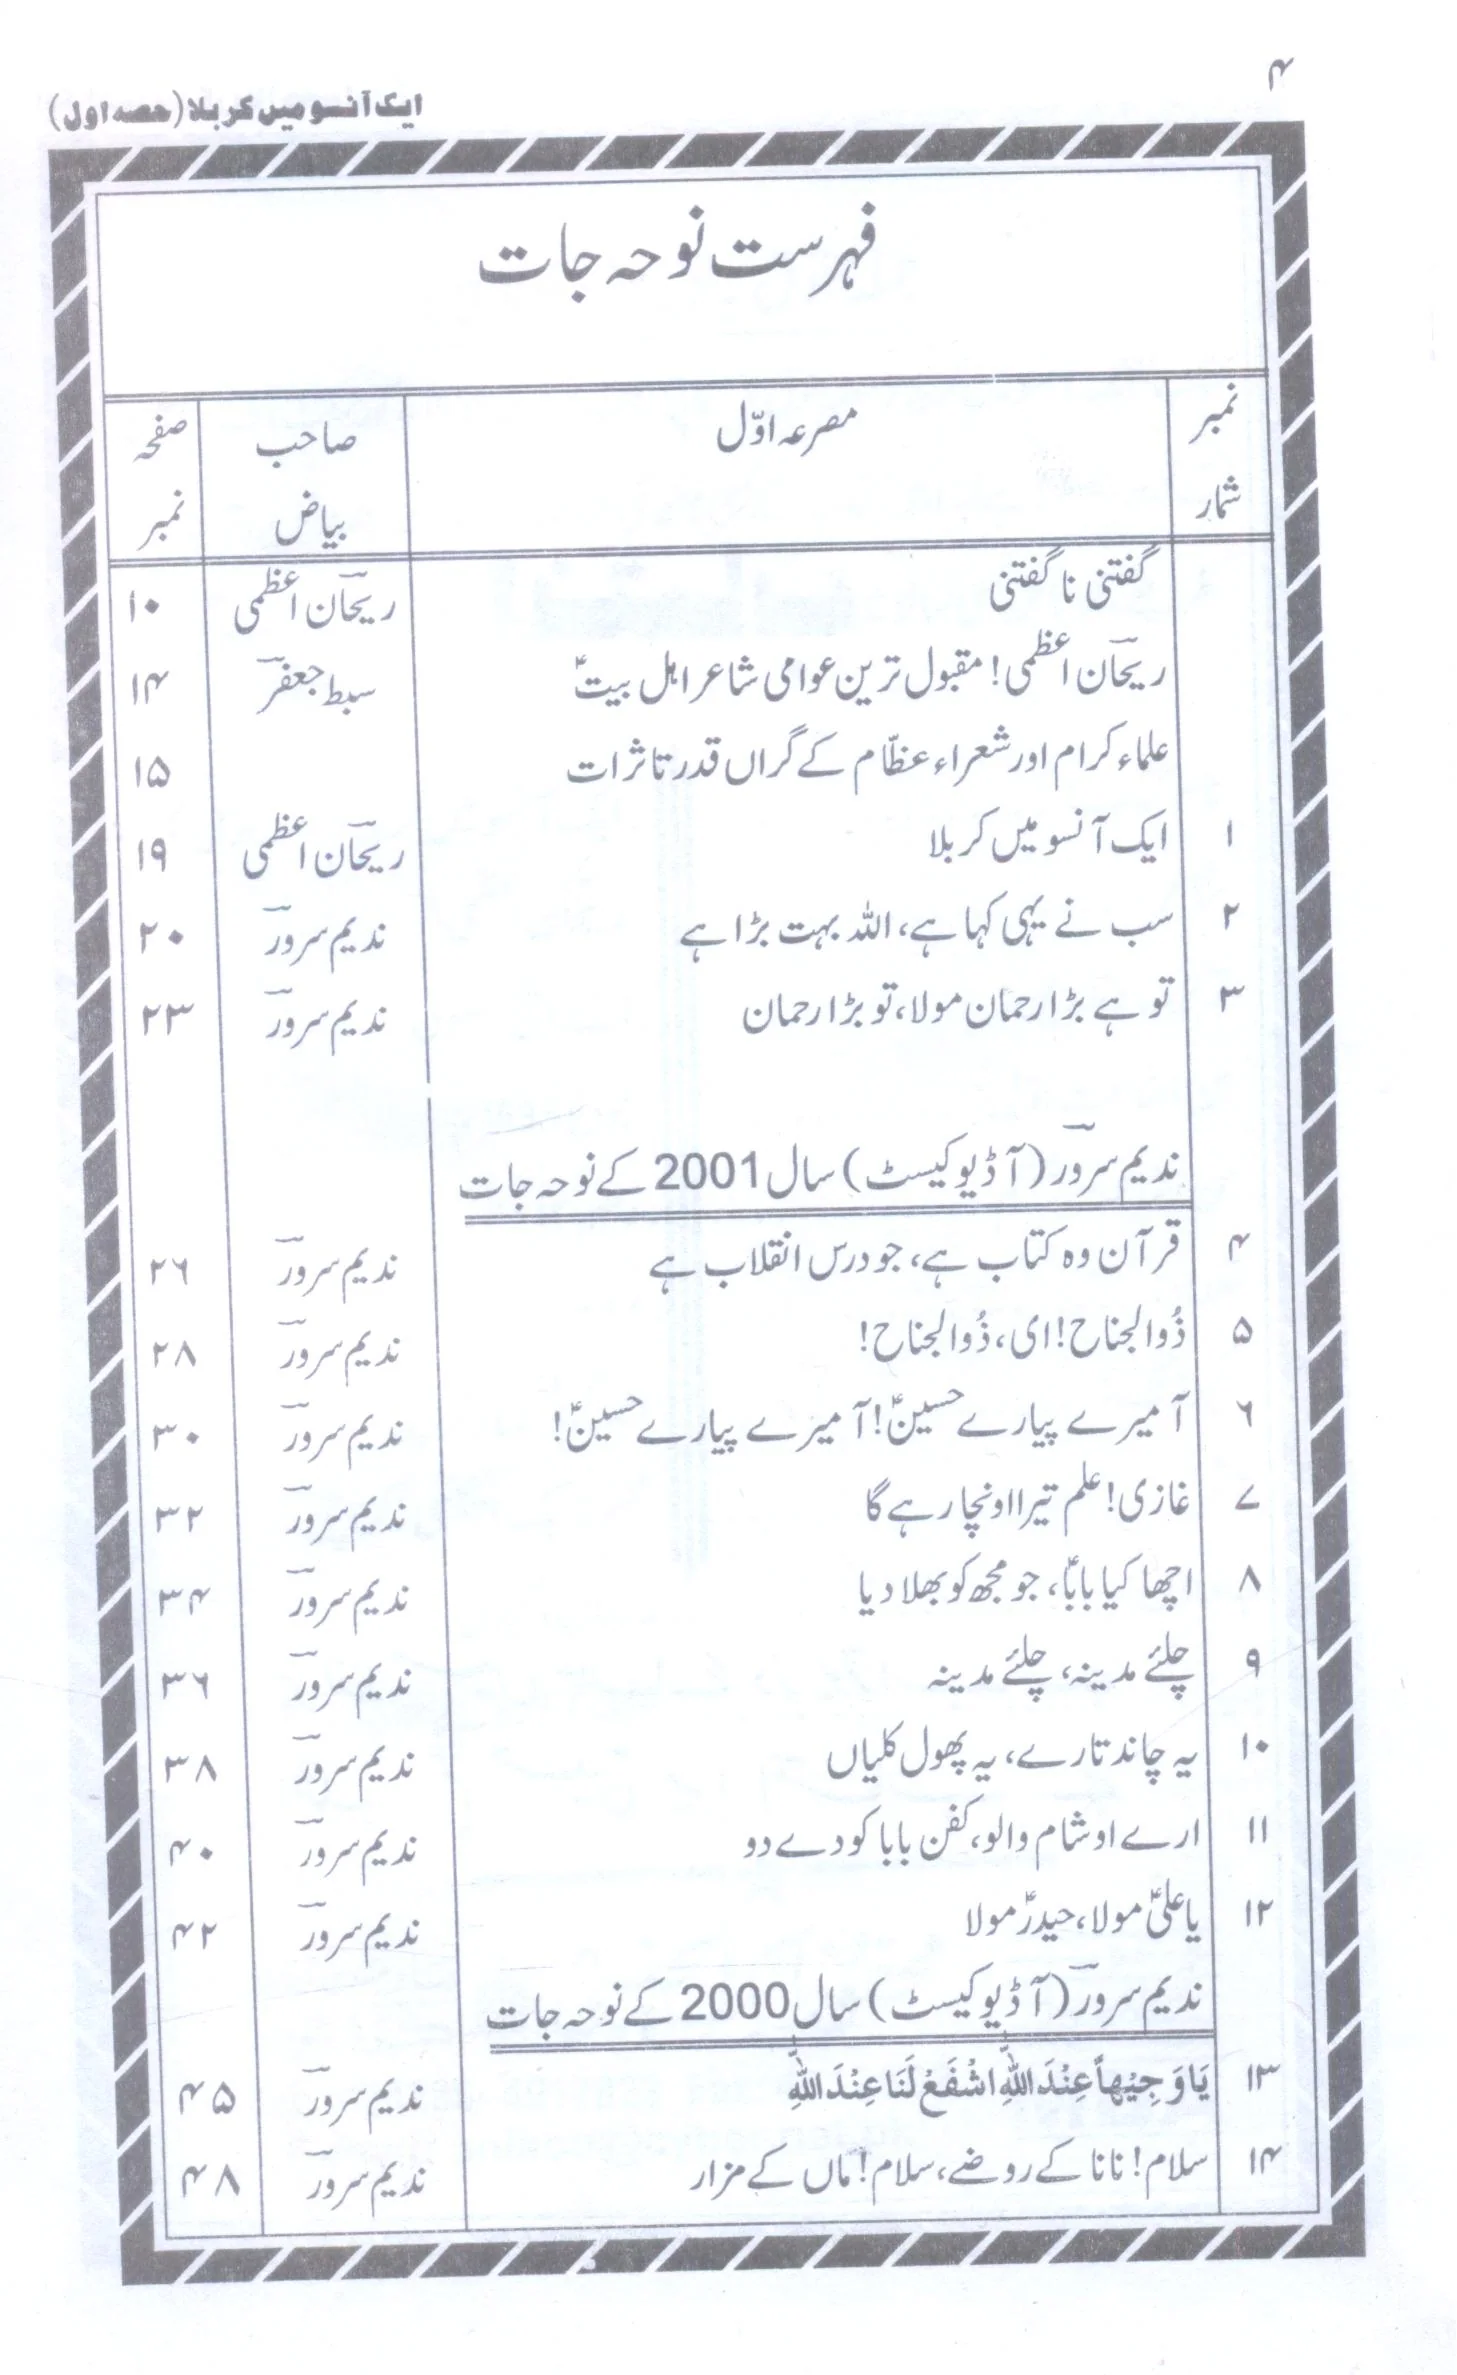 ۴
ایک آنسو میں کربلا (حصہ اول)
فہرست نوحہ جات
نمبر شمار مصرعہ اوّل صاحب بیاض صفحہ نمبر
گفتنی نا گفتنی ریحان اعظمی ۱۰
ریحان اعظمی! مقبول ترین عوامی شاعر اہل بیتؑ سبط جعفر ۱۴
علماء کرام اور شعراء عظّام کے گراں قدر تاثرات ۱۵
۱ ایک آنسو میں کربلا ریحان اعظمی ۱۹
۲ سب نے یہی کہا ہے، اللہ بہت بڑا ہے ندیم سرور ۲۰
۳ تو ہے بڑا رحمان مولا، تو بڑا رحمان ندیم سرور ۲۳
ندیم سرور (آڈیو کیسٹ) سال 2001 کے نوحہ جات
۴ قرآن وہ کتاب ہے، جو درس انقلاب ہے ندیم سرور ۲۶
۵ ذُوالجناح! ای، ذُوالجناح! ندیم سرور ۲۸
۶ آ میرے پیارے حسینؑ! آ میرے پیارے حسینؑ! ندیم سرور ۳۰
۷ غازی! علم تیرا اونچا رہے گا ندیم سرور ۳۲
۸ اچھا کیا باباؑ، جو مجھ کو بھلا دیا ندیم سرور ۳۴
۹ چلئے مدینہ، چلئے مدینہ ندیم سرور ۳۶
۱۰ یہ چاند تارے، یہ پھول کلیاں ندیم سرور ۳۸
۱۱ ارے او شام والو، کفن بابا کو دے دو ندیم سرور ۴۰
۱۲ یا علیؑ مولا، حیدرؑ مولا ندیم سرور ۴۲
ندیم سرور (آڈیو کیسٹ) سال 2000 کے نوحہ جات
۱۳ یَاوَجِیْھاً عِنْدَ اللّٰہِ اشْفَعْ لَنَا عِنْدَ اللّٰہِ ندیم سرور ۴۵
۱۴ سلام! نانا کے روضے، سلام! ماں کے مزار ندیم سرور ۴۸